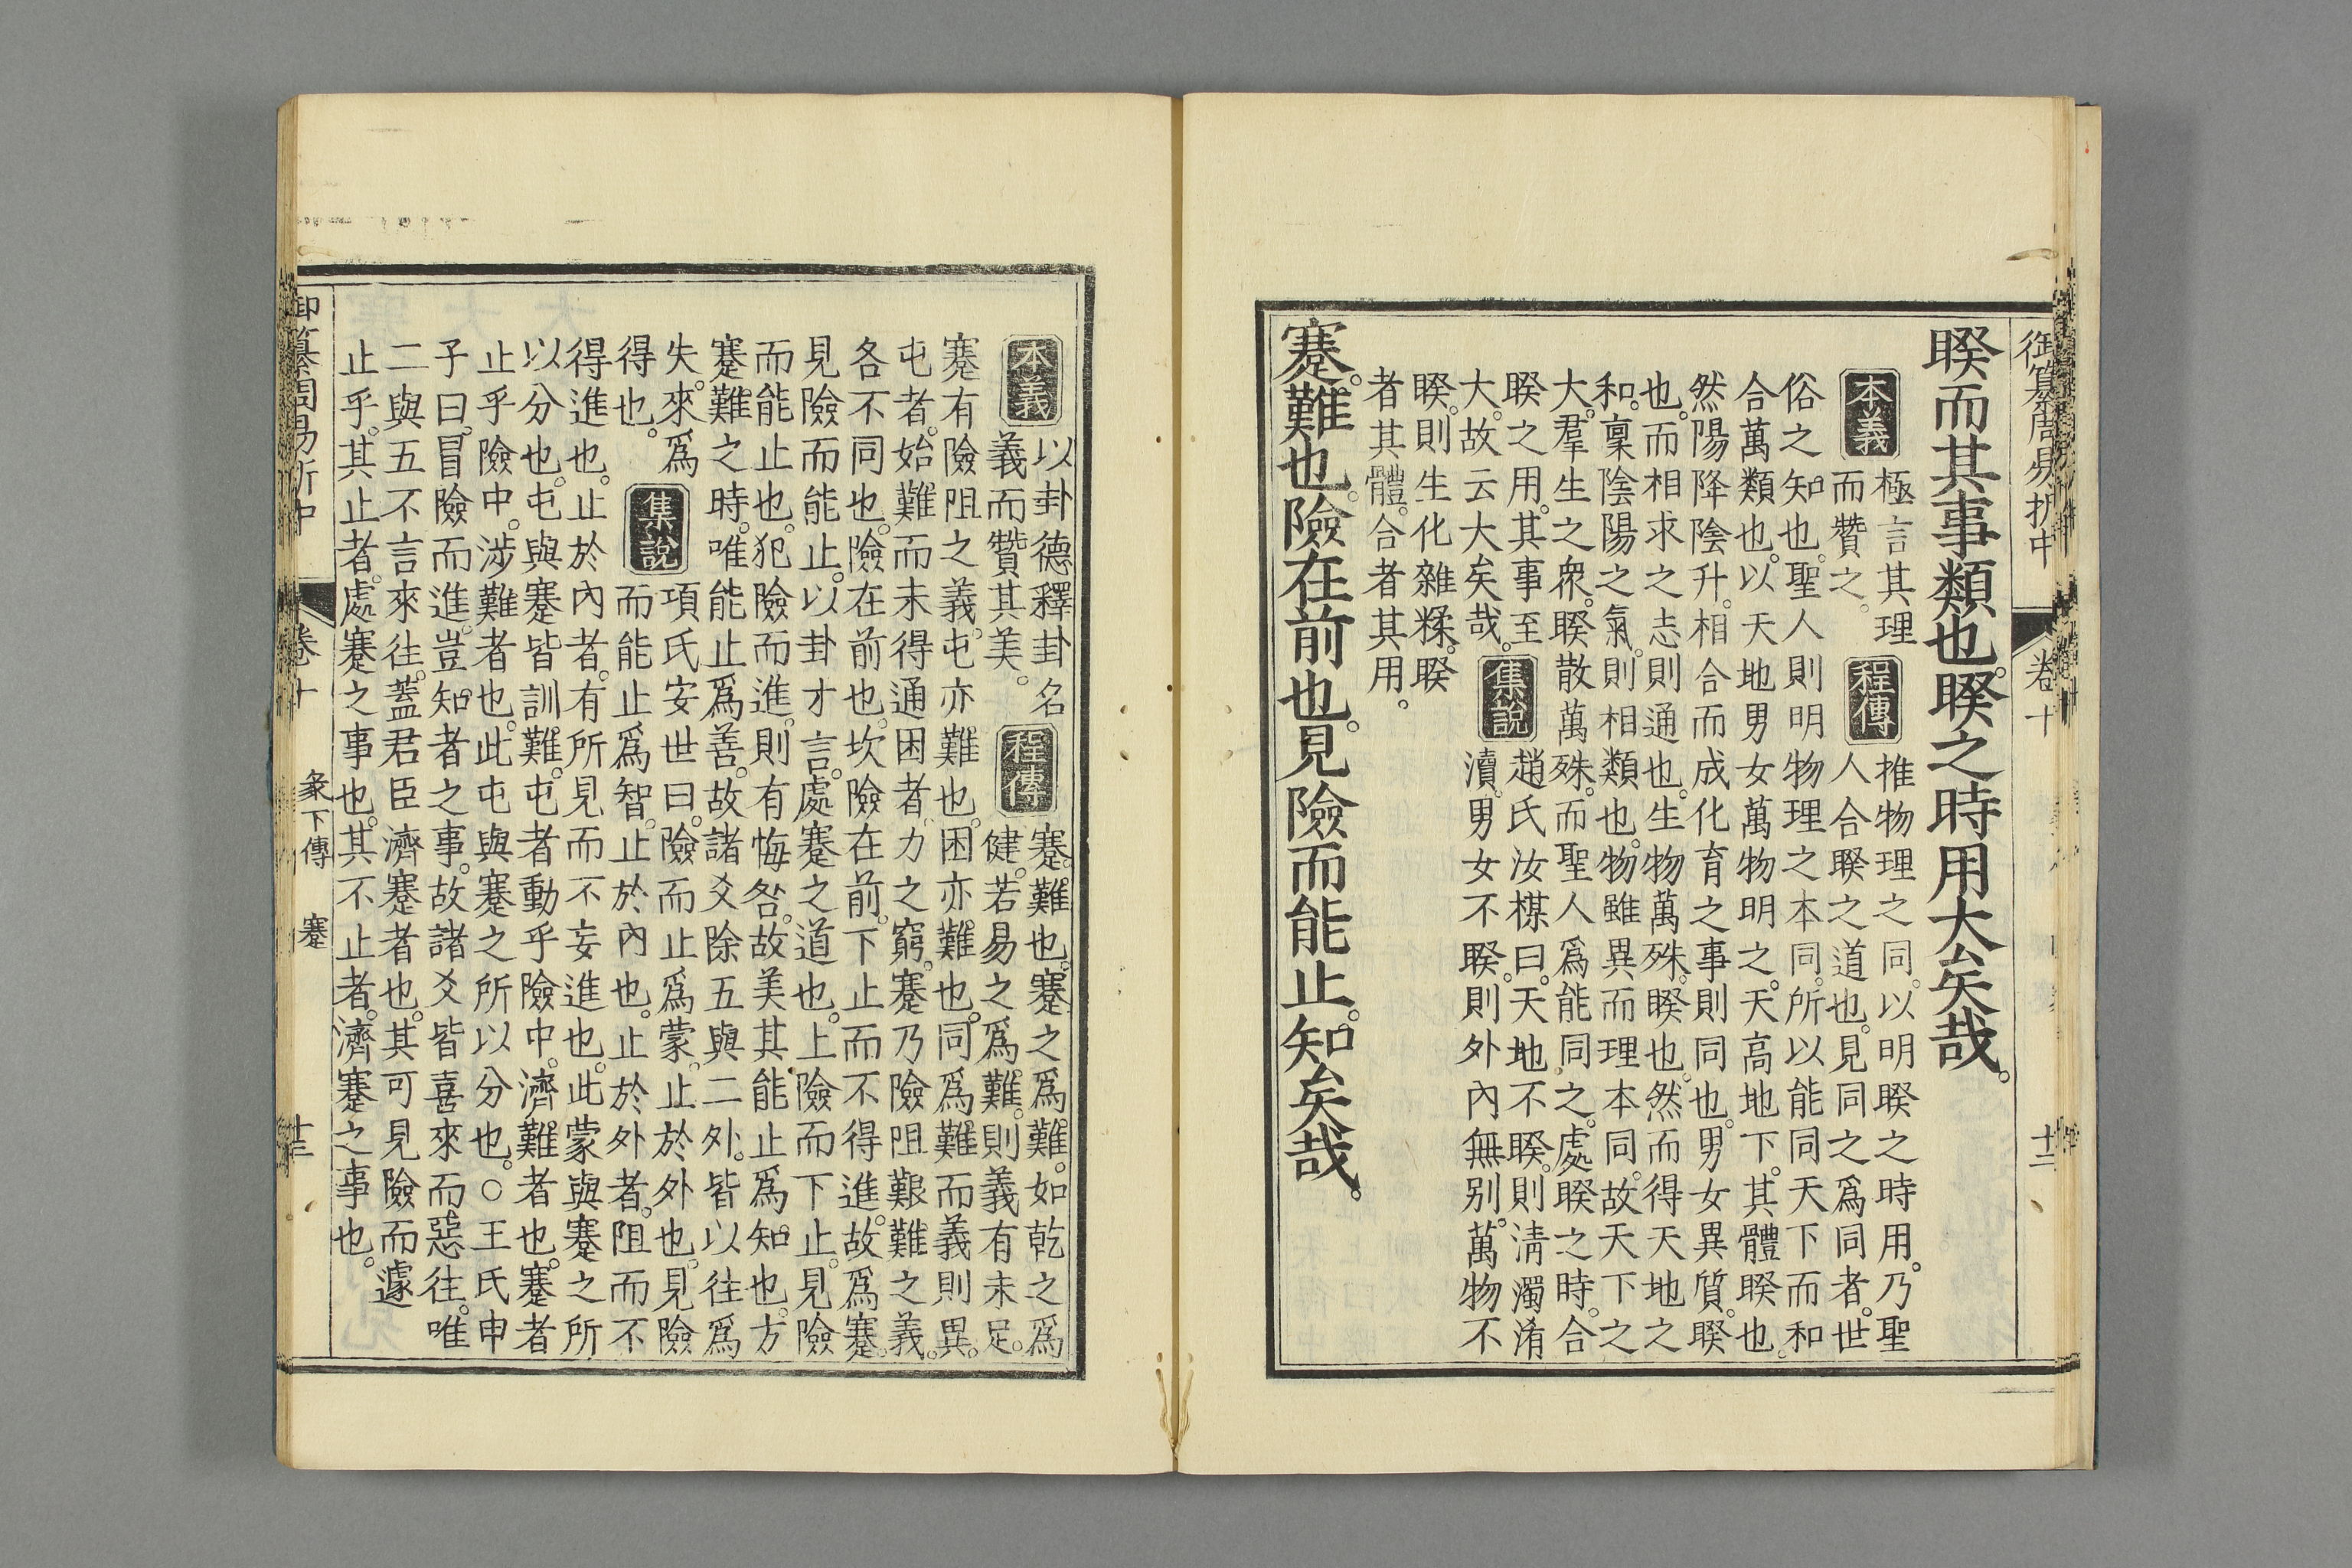 御纂周易折中 卷十 十二
睽而其事類也。睽之時用大矣哉。
本義
極言其理
而贊之。
程傳
推物理之同。以明睽之時用。乃聖
人合睽之道也。見同之爲同者。世
俗之知也。聖人則明物理之本同。所以能同天下而和
合萬類也。以天地男女萬物明之。天高地下。其體睽也。
然陽降陰升。相合而成化育之事則同也。男女異質。睽
也。而相求之志則通也。生物萬殊。睽也。然而得天地之
和。稟陰陽之氣。則相類也。物雖異而理本同。故天下之
大。羣生之衆。睽散萬殊。而聖人爲能同之。處睽之時。合
睽之用。其事至
大。故云大矣哉。
集說
趙氏汝楳曰。天地不睽。則淸濁淆
瀆。男女不睽。則外內無别。萬物不
睽。則生化雜糅。睽
者其體。合者其用。
蹇。難也。險在前也。見險而能止。知矣哉。
本義
以卦德釋卦名
義而贊其美。
程傳
蹇。難也。蹇之爲難。如乾之爲
健。若易之爲難。則義有未足。
蹇有險阻之義。屯亦難也。困亦難也。同爲難而義則異。
屯者。始難而未得通。困者。力之窮。蹇乃險阻艱難之義。
各不同也。險在前也。坎險在前。下止而不得進。故爲蹇。
見險而能止。以卦才言。處蹇之道也。上險而下止。見險
而能止也。犯險而進。則有悔咎。故美其能止爲知也。方
蹇難之時。唯能止爲善。故諸爻除五與二外。皆以往爲
失。來爲
得也。
集說
項氏安世曰。險而止爲蒙。止於外也。見險
而能止爲智。止於內也。止於外者。阻而不
得進也。止於內者。有所見而不妄進也。此蒙與蹇之所
以分也。屯與蹇皆訓難。屯者動乎險中。濟難者也。蹇者
止乎險中。涉難者也。此屯與蹇之所以分也。○王氏申
子曰。冒險而進。豈知者之事。故諸爻皆喜來而惡往。唯
二與五不言來往。蓋君臣濟蹇者也。其可見險而遽
止乎。其止者。處蹇之事也。其不止者。濟蹇之事也。
御纂周易折中 卷十 彖下傳 蹇 十三